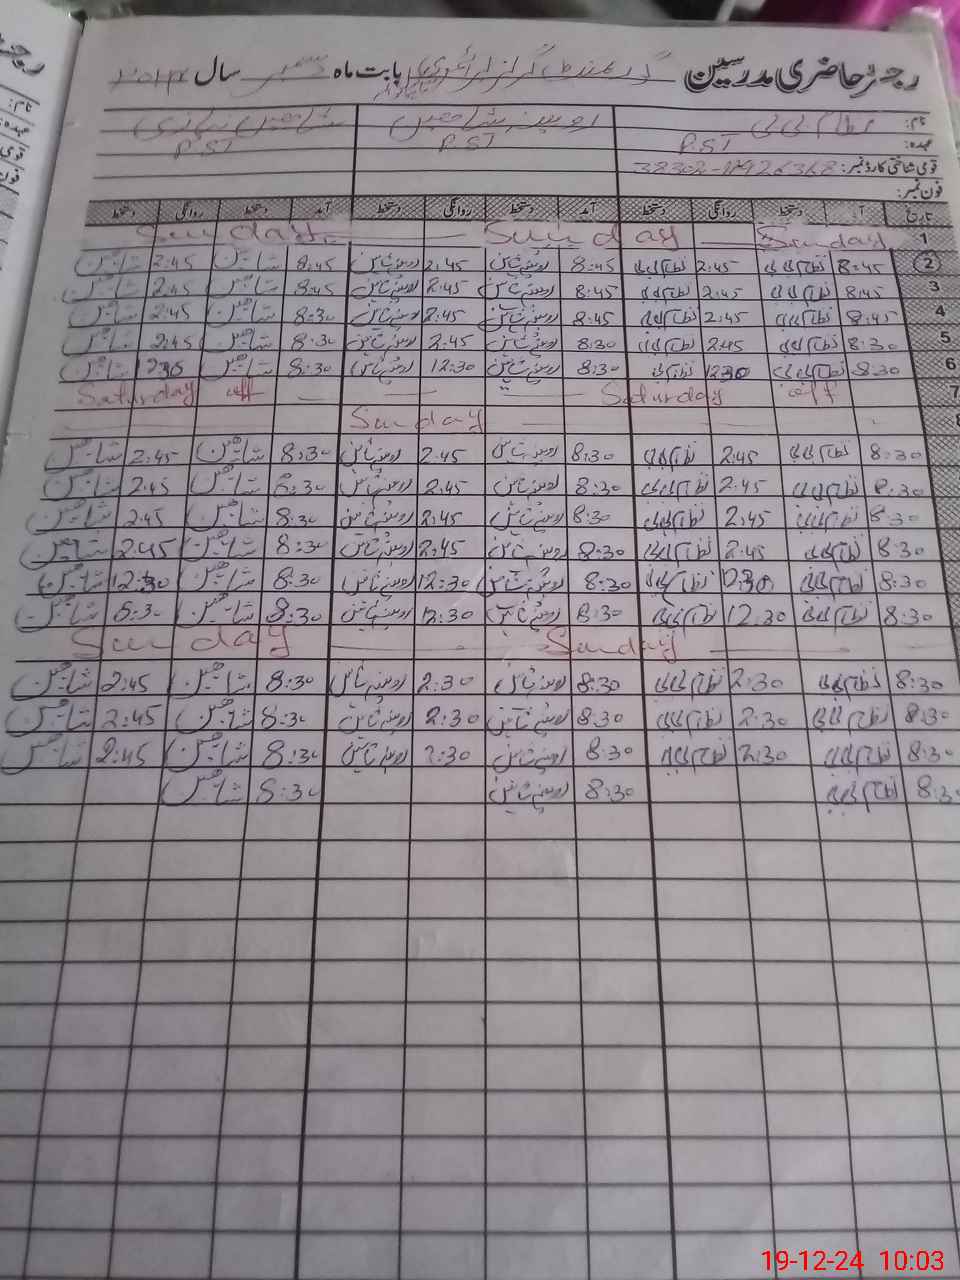 رجسٹر حاضری مدرسین گورنمنٹ گرلز پرائمری بابت ماہ دسمبر سال ۲۰۲۴
نام: نظام بی بی روبینہ شاہین شاھین نیازی
عہدہ: P.ST P.ST P.ST
قومی شناختی کارڈ نمبر:
فون نمبر:
تاریخ آمد دستخط روانگی دستخط آمد دستخط روانگی دستخط آمد دستخط روانگی دستخط
1 Sunday Sunday Sunday
2 8:45 نظام بی بی 2:45 نظام بی بی 8:45 روبینہ شاہین 2:45 روبینہ شاہین 8:45 شاھین 2:45 شاھین
3 8:45 نظام بی بی 2:45 نظام بی بی 8:45 روبینہ شاہین 2:45 روبینہ شاہین 8:45 شاھین 2:45 شاھین
4 8:45 نظام بی بی 2:45 نظام بی بی 8:45 روبینہ شاہین 2:45 روبینہ شاہین 8:30 شاھین 2:45 شاھین
5 8:30 نظام بی بی 2:45 نظام بی بی 8:30 روبینہ شاہین 2:45 روبینہ شاہین 8:30 شاھین 2:45 شاھین
6 8:30 نظام بی بی 1230 نظام بی بی 8:30 روبینہ شاہین 12:30 روبینہ شاہین 8:30 شاھین 1230 شاھین
7 Saturday off Saturday off
Sunday
8:30 نظام بی بی 2:45 نظام بی بی 8:30 روبینہ شاہین 2:45 روبینہ شاہین 8:30 شاھین 2:45 شاھین
8:30 نظام بی بی 2:45 نظام بی بی 8:30 روبینہ شاہین 2:45 روبینہ شاہین 8:30 شاھین 2:45 شاھین
8:30 نظام بی بی 2:45 نظام بی بی 8:30 روبینہ شاہین 2:45 روبینہ شاہین 8:30 شاھین 2:45 شاھین
8:30 نظام بی بی 2:45 نظام بی بی 8:30 روبینہ شاہین 2:45 روبینہ شاہین 8:30 شاھین 2:45 شاھین
8:30 نظام بی بی 12:30 نظام بی بی 8:30 روبینہ شاہین 12:30 روبینہ شاہین 8:30 شاھین 12:30 شاھین
8:30 نظام بی بی 12.30 نظام بی بی 8:30 روبینہ شاہین 12:30 روبینہ شاہین 8:30 شاھین شاھین
Sunday Sunday
8:30 نظام بی بی 2:30 نظام بی بی 8:30 روبینہ شاہین 2:30 روبینہ شاہین 8:30 شاھین 2:45 شاھین
8:30 نظام بی بی 2:30 نظام بی بی 8:30 روبینہ شاہین 2:30 روبینہ شاہین 8:30 شاھین 2:45 شاھین
8:30 نظام بی بی 2:30 نظام بی بی 8:30 روبینہ شاہین 2:30 روبینہ شاہین 8:30 شاھین 2:45 شاھین
8:30 نظام بی بی 8:30 روبینہ شاہین 8:30 شاھین
19-12-24 10:03